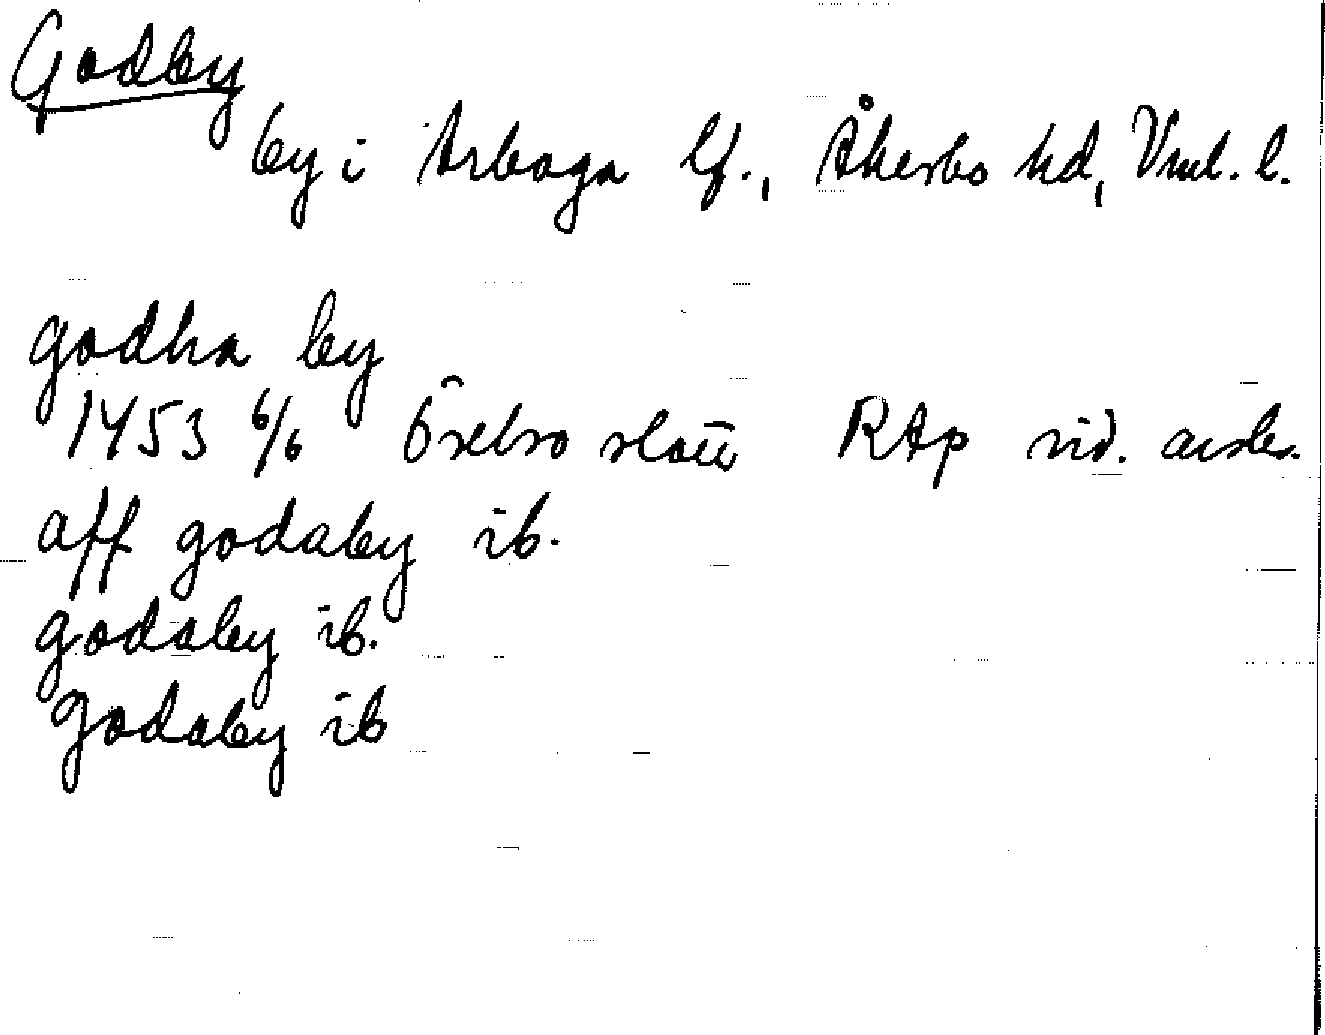 Godby
by i Arboga lf., Åkerbo hd, Vml. l.
godha by
1453 6/6 Örebro slott RAp vid. avskr.
aff godaby ib.
godaby ib.
godaby ib